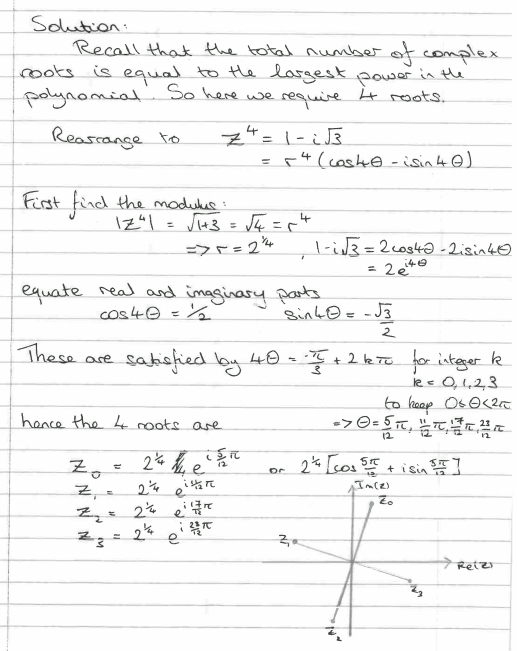 Solution:
Recall that the total number of complex
roots is equal to the largest power in the
polynomial. So here we require 4 roots.
Rearrange to z⁴ = 1 - i√3
= r⁴ (cos4θ - isin4θ)
First find the modulus:
|z⁴| = √1+3 = √4 = r⁴
=> r = 2^¼ , 1-i√3 = 2cos4θ - 2isin4θ
= 2e^i4θ
equate real and imaginary parts
cos4θ = 1/2 sin4θ = -√3/2
These are satisfied by 4θ = -π/3 + 2kπ for integer k
k = 0,1,2,3
to keep 0≤θ<2π
hence the 4 roots are => θ = 5/12 π, 11/12 π, 17/12 π, 23/12 π
z₀ = 2^¼ e^i 5/12 π or 2^¼ [cos 5π/12 + isin 5π/12]
z₁ = 2^¼ e^i 11/12 π
z₂ = 2^¼ e^i 17/12 π
z₃ = 2^¼ e^i 23/12 π
Im(z)
z₀
z₁
Re(z)
z₃
z₂